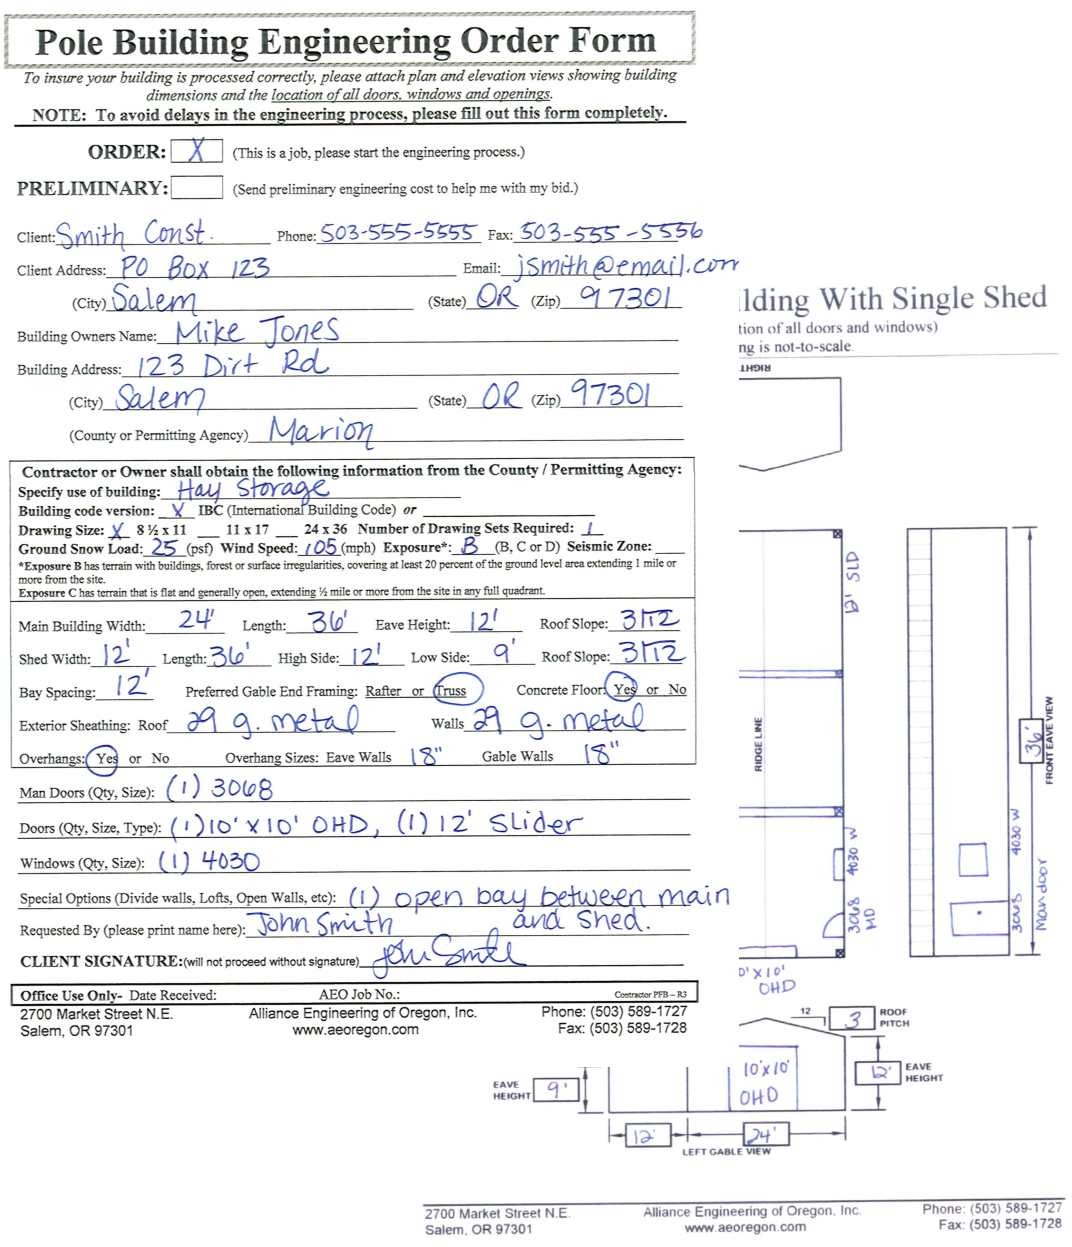 Pole Building Engineering Order Form
To insure your building is processed correctly, please attach plan and elevation views showing building
dimensions and the location of all doors, windows and openings.
NOTE: To avoid delays in the engineering process, please fill out this form completely.
ORDER: X (This is a job, please start the engineering process.)
PRELIMINARY: (Send preliminary engineering cost to help me with my bid.)
Client: Smith Const. Phone: 503-555-5555 Fax: 503-555-5556
Client Address: PO Box 123 Email: jsmith@email.com
(City) Salem (State) OR (Zip) 97301
Building Owners Name: Mike Jones
Building Address: 123 Dirt Rd
(City) Salem (State) OR (Zip) 97301
(County or Permitting Agency) Marion
Contractor or Owner shall obtain the following information from the County / Permitting Agency:
Specify use of building: Hay Storage
Building code version: X IBC (International Building Code) or
Drawing Size: X 8 ½ x 11 __ 11 x 17 __ 24 x 36 Number of Drawing Sets Required: 1
Ground Snow Load: 25 (psf) Wind Speed: 105 (mph) Exposure*: B (B, C or D) Seismic Zone:
*Exposure B has terrain with buildings, forest or surface irregularities, covering at least 20 percent of the ground level area extending 1 mile or
more from the site.
Exposure C has terrain that is flat and generally open, extending ½ mile or more from the site in any full quadrant.
Main Building Width: 24' Length: 36' Eave Height: 12' Roof Slope: 3/12
Shed Width: 12' Length: 36' High Side: 12' Low Side: 9' Roof Slope: 3/12
Bay Spacing: 12' Preferred Gable End Framing: Rafter or Truss Concrete Floor: Yes or No
Exterior Sheathing: Roof 29 g. metal Walls 29 g. metal
Overhangs: Yes or No Overhang Sizes: Eave Walls 18" Gable Walls 18"
Man Doors (Qty, Size): (1) 3068
Doors (Qty, Size, Type): (1) 10' x 10' OHD, (1) 12' Slider
Windows (Qty, Size): (1) 4030
Special Options (Divide walls, Lofts, Open Walls, etc): (1) open bay between main
and shed.
Requested By (please print name here): John Smith
CLIENT SIGNATURE: (will not proceed without signature) John Smith
Office Use Only- Date Received: AEO Job No.: Contractor PFB – R3
2700 Market Street N.E. Alliance Engineering of Oregon, Inc. Phone: (503) 589-1727
Salem, OR 97301 www.aeoregon.com Fax: (503) 589-1728
lding With Single Shed
tion of all doors and windows)
ng is not-to-scale.
RIGHT
12' SLD
RIDGE LINE
36'
FRONT EAVE VIEW
4030 W
3068
MD
4030 W
3068
Man door
0'x10'
OHD
12 3 ROOF
PITCH
10'x10'
OHD
12' EAVE
HEIGHT
EAVE
HEIGHT 9'
12' 24'
LEFT GABLE VIEW
2700 Market Street N.E. Alliance Engineering of Oregon, Inc. Phone: (503) 589-1727
Salem, OR 97301 www.aeoregon.com Fax: (503) 589-1728